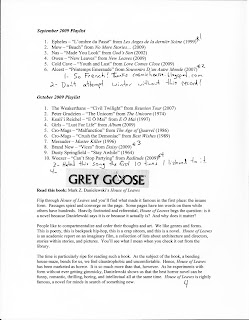 September 2009 Playlist
1. Ephelus – "L'ombre du Passé" from Les Anges de la dernière Scène (1999) #1
2. Mew – "Beach" from No More Stories... (2009)
3. Nas – "Made You Look" from God's Son (2002)
4. Owen – "New Leaves" from New Leaves (2009)
5. Cold Cave – "Youth and Lust" from Love Comes Close (2009)
6. Alcest – "Printemps Emeraude" from Souvenirs D'un Autre Monde (2007) #2
1. So French! Thanks cosmichearse.blogspot.com
2. Don't attempt winter without this record!
October 2009 Playlist
1. The Weakerthans – "Civil Twilight" from Reunion Tour (2007)
2. Peter Grudzien – "The Unicorn" from The Unicorn (1974)
3. Kanii'l Reichel – "E Ō Mai" from E Ō Mai (1997)
4. Girls – "Lust For Life" from Album (2009)
5. Cro-Mags – "Malfunction" from The Age of Quarrel (1986)
6. Cro-Mags – "Crush the Demoniac" from Best Wishes (1989)
7. Marauder – Master Killer (1996) #3
8. Bread Wow – "Wires" from Envoy (2009)
9. Dusty Springfield – "Stay Awhile" (1964)
10. Weezer – "Can't Stop Partying" from Raditude (2009)
2. Hated this song the first 10 times I listened to it
GREY GOOSE
Read this book: Mark Z. Danielewski's House of Leaves
Flip through House of Leaves and you'll find what made it famous in the first place: the insane
font. Passages spiral and converge on the page. Some pages have ten words on them while
others have hundreds. Heavily footnoted and referential, House of Leaves begs the question: is it
a novel because Danielewski says it is or because it actually is? And why does it matter?
People like to compartmentalize and order their thoughts and art. We like genres and forms.
This is poetry, this is backpack hiphop, this is a crap sitcom, and this is a novel. House of Leaves
is an academic report on an imaginary film, a collection of lists about architecture and directors,
stories within stories, and pictures. You'll see what I mean when you check it out from the
library.
The time is particularly ripe for reading such a book. As the subject of the book, a bending
house-maze, bends for us, we feel claustrophobic and uncomfortable. Hmm. House of Leaves
has been marketed as horror. It is so much more than that, however. As he experiments with
form without ever getting gimmicky, Danielewski shows us that the best horror novel can be
funny, romantic, thrilling, boring, and intellectual all at the same time. House of Leaves is rightly
famous, a novel for minds in search of something new.
9